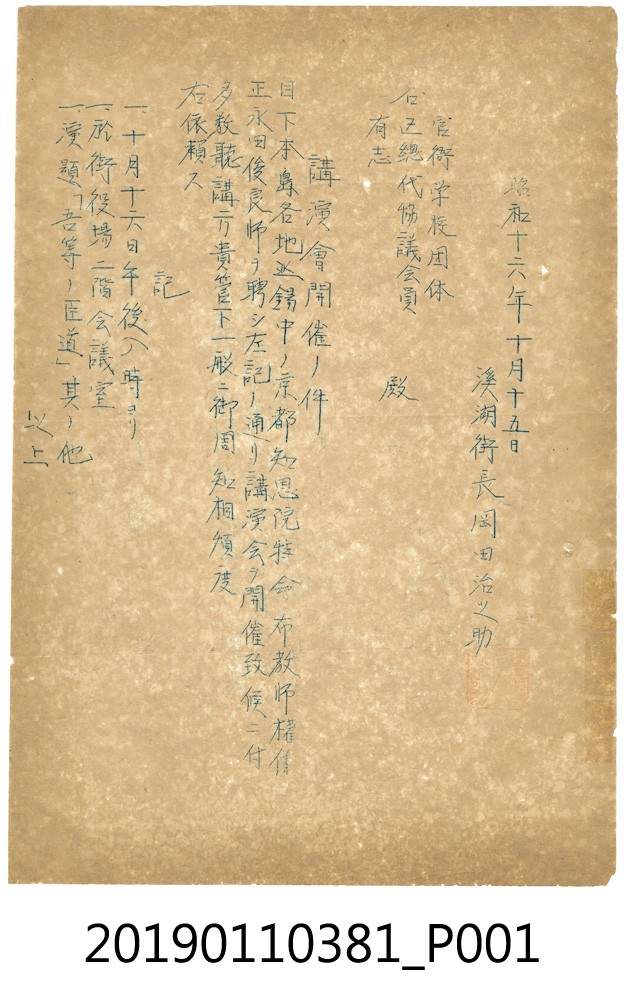 昭和十六年十月十五日
溪湖街長岡田治之助
官衙学校団体
各区總代協議会員
有志
殿
講演會開催ノ件
目下本島各地巡錫中ノ京都知恩院特命布教師権僧
正永田俊良師ヲ聘シ左記ノ通リ講演会ヲ開催致候ニ付
多数聽講方貴管下一般ニ御周知相煩度
右依賴ス
記
一、十月十六日午後八時ヨリ
一、於街役場二階会議室
一、演題「吾等ノ臣道」其ノ他
以上
20190110381_P001